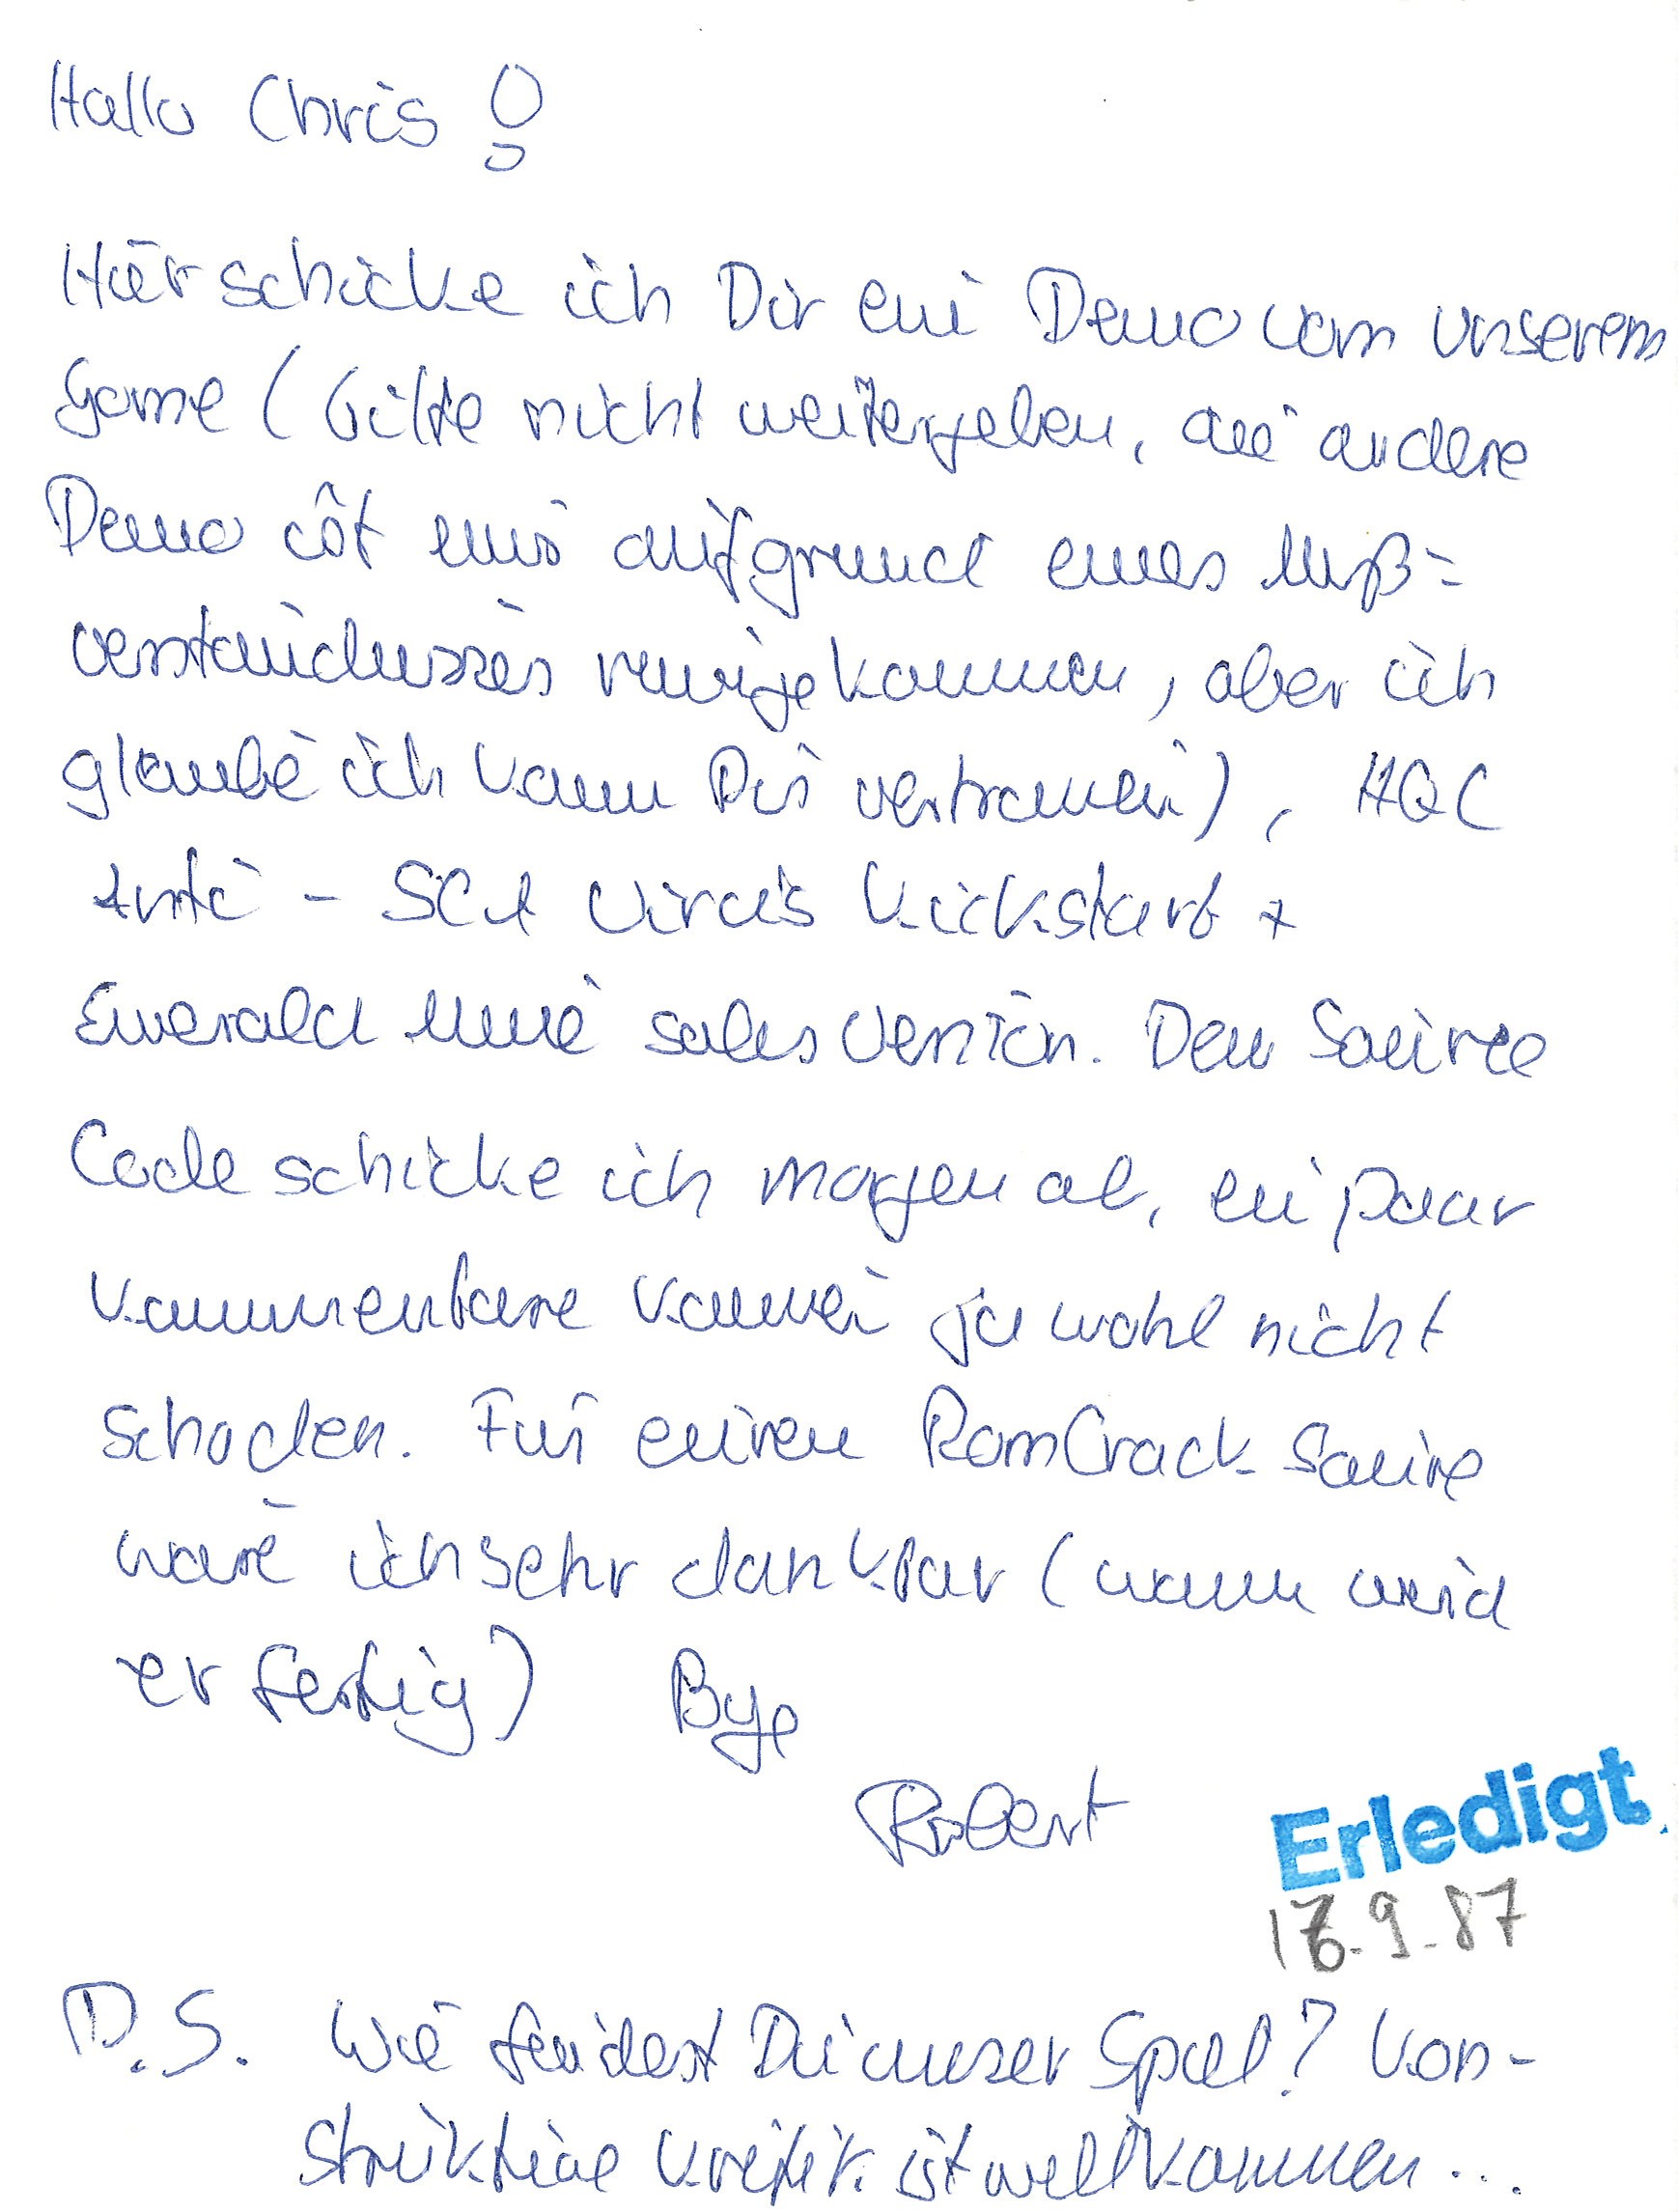 Hallo Chris!
Hier schicke ich Dir ein Demo vom unserem
Game (bitte nicht weitergeben, die andere
Demo ist nur aufgrund eines Miß=
verständnisses rumgekommen, aber ich
glaube ich kann Dir vertrauen), HQC
Anti - SCA Virus Kickstart +
Emerald Mine sales version. Den Source
Code schicke ich morgen ab, ein paar
Kommentare können ja wohl nicht
schaden. Für einen RomCrack-Source
wäre ich sehr dankbar (wann wird
er fertig) Bye
Robert
Erledigt
9.87
P.S. Wie findest Du unser Spiel? Kon-
struktive Kritik ist willkommen...